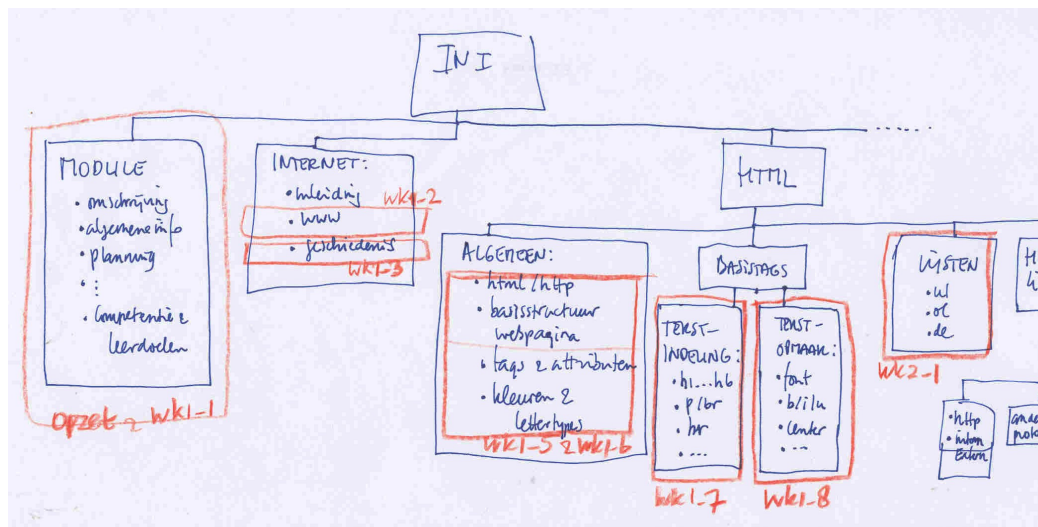 INI
MODULE
• omschrijving
• algemene info
• planning
• :
• Competentie &
leerdoelen
opzet & wk1-1
INTERNET:
• inleiding
wk1-2
• WWW
• geschiedenis
wk1-3
HTML
ALGEMEEN:
• html/http
• basisstructuur
webpagina
• tags & attributen
• kleuren &
lettertypes
wk1-5 & wk1-6
BASISTAGS
TEKST-
INDELING:
• h1...h6
• p/br
• hr
• ...
wk1-7
TEKST-
OPMAAK:
• font
• b/i/u
• center
• ...
wk1-8
LIJSTEN
• ul
• ol
• de
wk2-1
H
• http
• intern
Extern